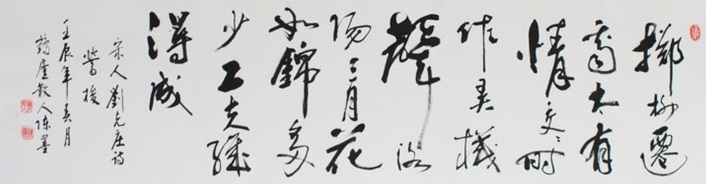 擲柳遷
喬太有
情交々時
作弄機
聲洛
陽三月花
如錦多
少工夫織
得成
宋人劉克庄詩
鶯梭
壬辰年春月
散人陈墨